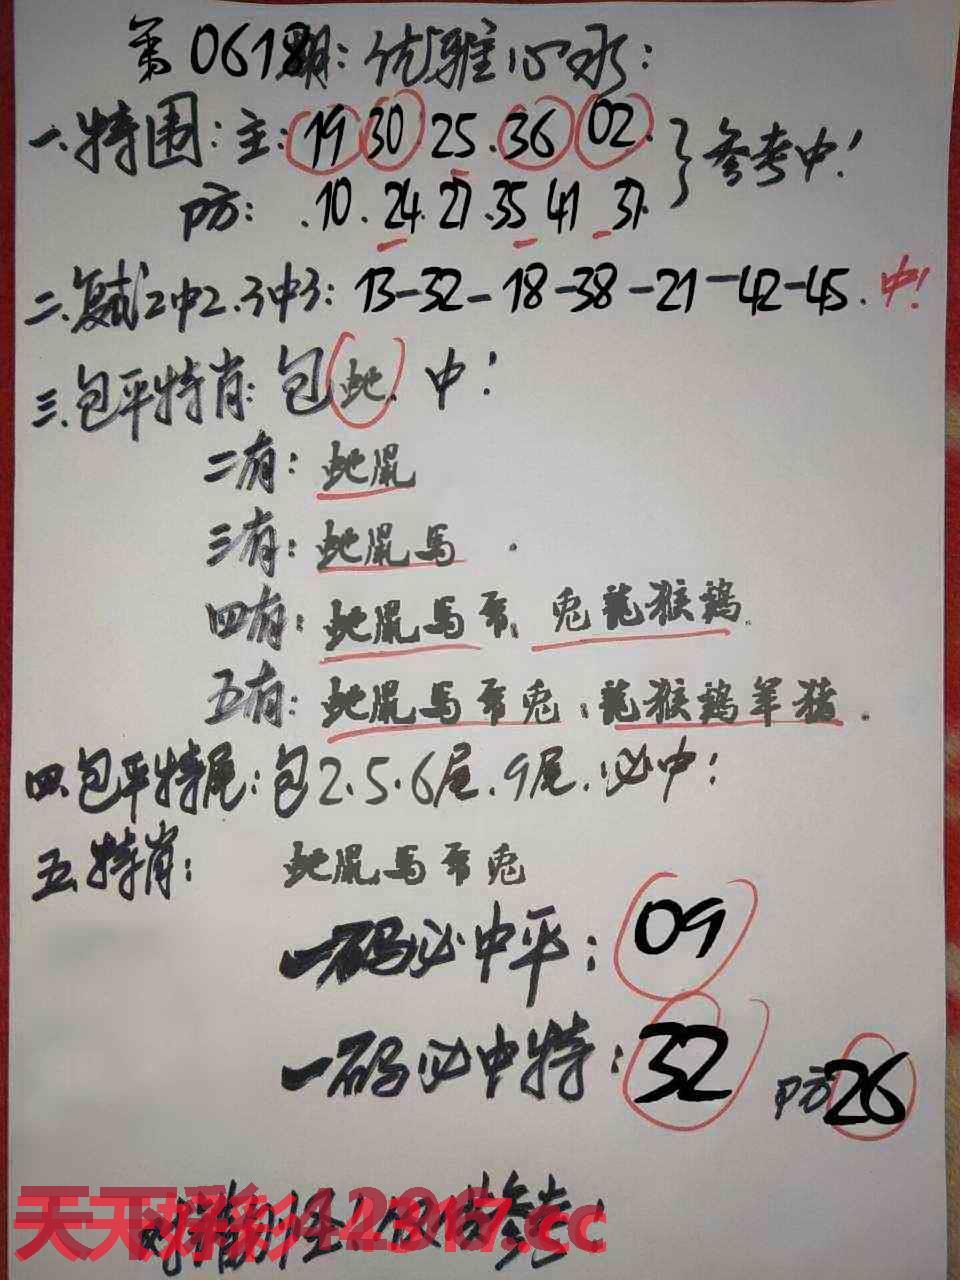 第0618期：优雅心水：
一.特围：主：19 30 25.36 02.}参考中！
防：.10.24.27.35 41 37.
二.复试2中2.3中3：13-32-18-38-21-42-45.中！
三.包平特肖：包蛇.中！
二有：蛇鼠
三有：蛇鼠馬.
四有：蛇鼠馬帝.兎龍猴鷄.
五有：蛇鼠馬帝兎：龍猴鷄羊猪.
四.包平特尾：包2.5.6尾.9尾.必中！
五.特肖：蛇鼠馬帝兎
一码必中平：09
一码必中特：32 防26
天下彩 .cc
参考